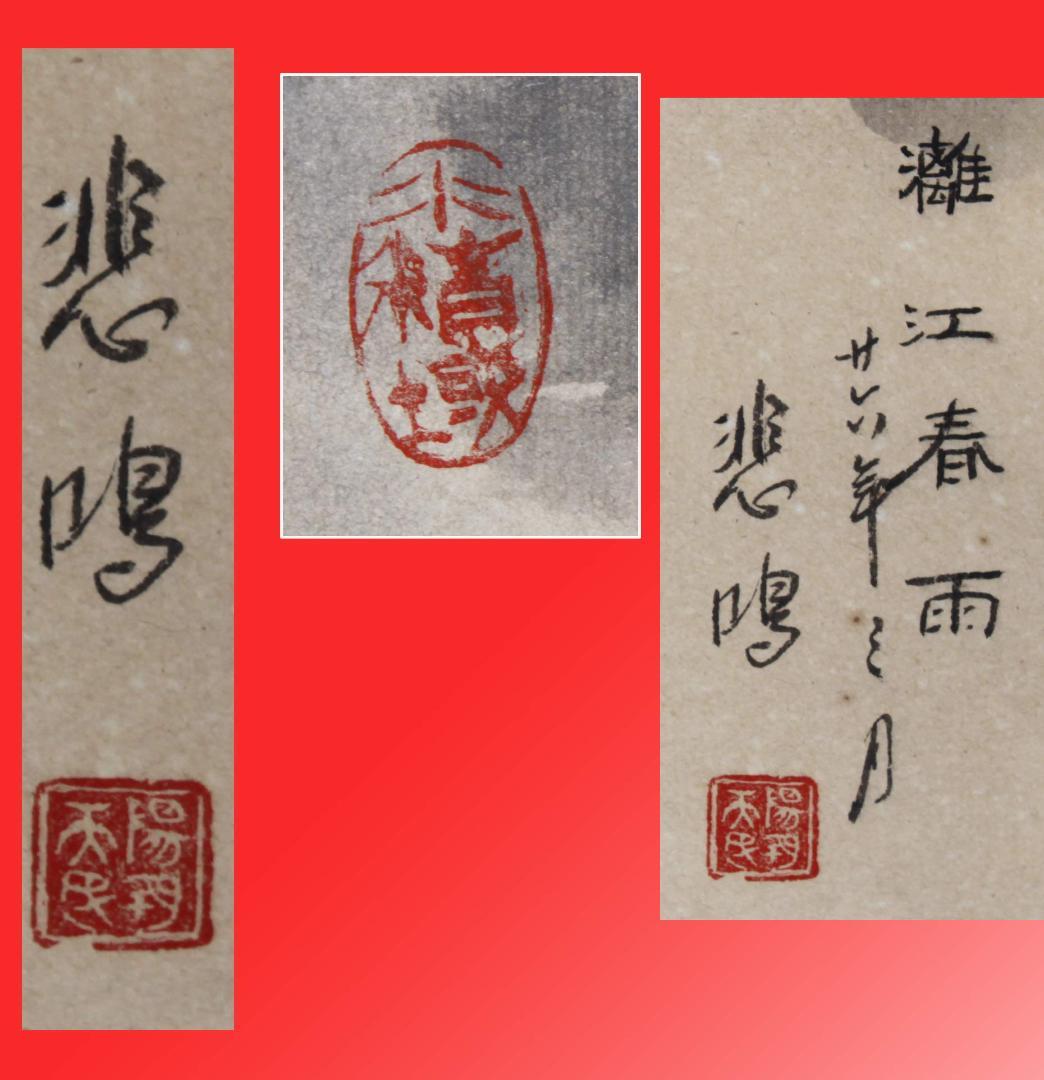 悲鴻
陽朔天民
灕江春雨
廿六年三月
悲鴻
陽朔天民